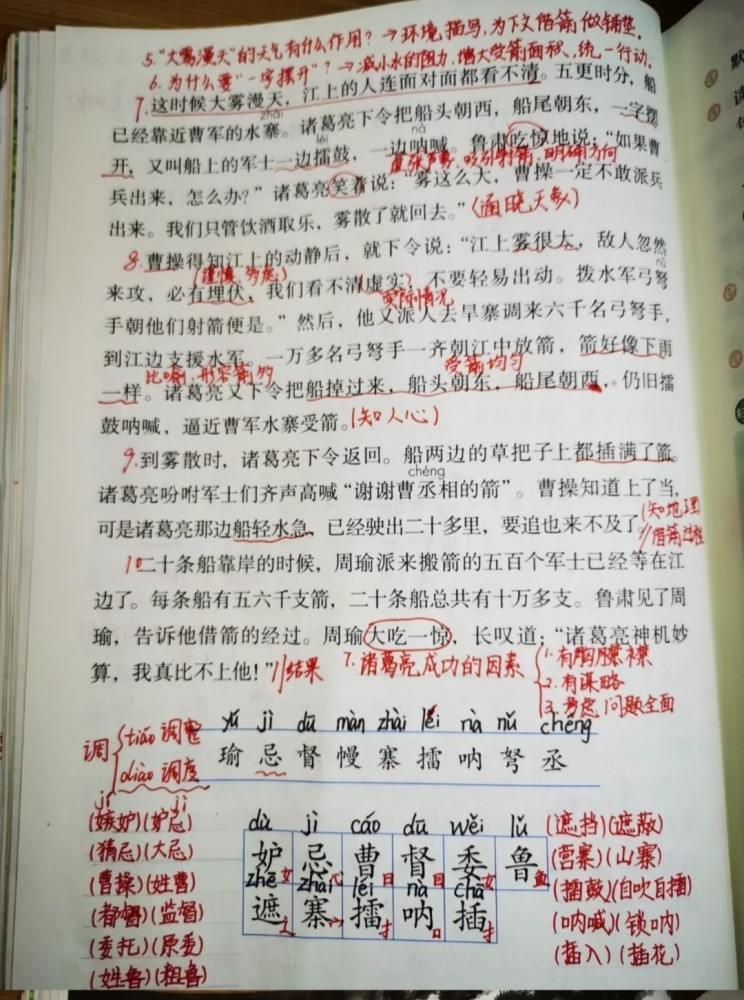 5."大雾漫天"的天气有什么作用?→环境描写,为下文借箭做铺垫。
6.为什么要"一字摆开"?→减小水的阻力,增大受箭面积,统一行动。
7.这时候大雾漫天,江上的人连面对面都看不清。五更时分,船
zhài
已经靠近曹军的水寨。诸葛亮下令把船头朝西,船尾朝东,一字摆
léi nà
开,又叫船上的军士一边擂鼓,一边呐喊。鲁肃吃惊地说:"如果曹
虚张声势,吸引射箭,明确方向
兵出来,怎么办?"诸葛亮笑着说:"雾这么大,曹操一定不敢派兵
出来。我们只管饮酒取乐,雾散了就回去。"(通晓天象)
8.曹操得知江上的动静后,就下令说:"江上雾很大,敌人忽然
(谨慎、多疑) nǔ
来攻,必有埋伏,我们看不清虚实,不要轻易出动。拨水军弓弩
实际情况
手朝他们射箭便是。"然后,他又派人去旱寨调来六千名弓弩手,
到江边支援水军。一万多名弓弩手一齐朝江中放箭,箭好像下雨
比喻,形容箭多 受箭均匀
一样。诸葛亮又下令把船掉过来,船头朝东,船尾朝西,仍旧擂
鼓呐喊,逼近曹军水寨受箭。(知人心)
9.到雾散时,诸葛亮下令返回。船两边的草把子上都插满了箭。
chéng
诸葛亮吩咐军士们齐声高喊"谢谢曹丞相的箭"。曹操知道上了当,
可是诸葛亮那边船轻水急,已经驶出二十多里,要追也来不及了。(知地理)
//借箭过程
10二十条船靠岸的时候,周瑜派来搬箭的五百个军士已经等在江
边了。每条船有五六千支箭,二十条船总共有十万多支。鲁肃见了周
瑜,告诉他借箭的经过。周瑜大吃一惊,长叹道:"诸葛亮神机妙
算,我真比不上他!"//结果 7.诸葛亮成功的因素
1.有胸襟
2.有谋略
3.考虑问题全面
yú jì dū màn zhài léi nà nǔ chéng
瑜 忌 督 幔 寨 擂 呐 弩 丞
调
tiáo 调整
diào 调度
jí jì
(嫉妒)(妒忌)
(猜忌)(大忌)
(曹操)(姓曹)
(都督)(监督)
(委托)(原委)
(姓鲁)(粗鲁)
dù jì cáo dū wěi lǔ
妒 忌 曹 督 委 鲁
女 心 日 目 女 鱼
zhē zhài léi nà chā
遮 寨 擂 呐 插
辶 宀 扌 口 扌
(遮挡)(遮蔽)
(营寨)(山寨)
(擂鼓)(自吹自擂)
(呐喊)(锁呐)
(插入)(插花)